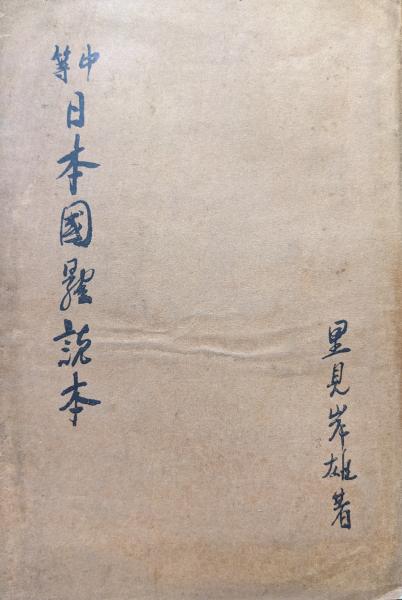 中等
日本國體読本
里見岸雄著